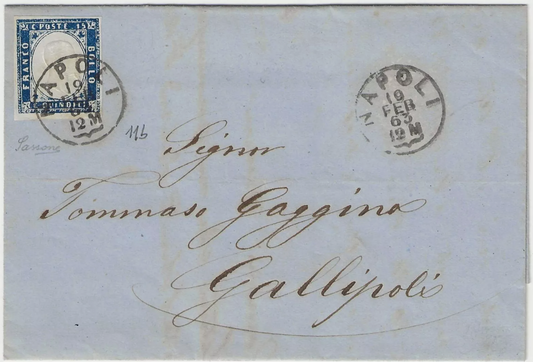 C. POSTE 15
FRANCO
BOLLO
C. QUINDICI
NAPOLI
19
FEB
63
12M
NAPOLI
19
FEB
63
12M
Sassone
11b
Signor
Tommaso Gaggino
Gallipoli